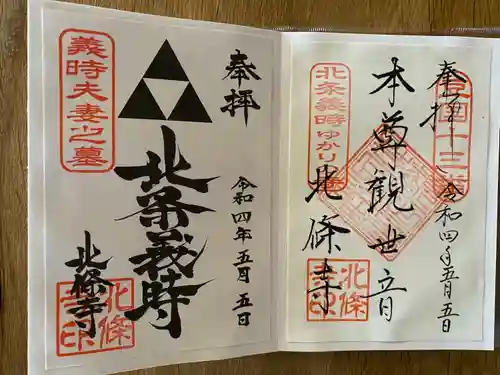 奉拝
令和四年五月五日
本尊観世音
北条義時ゆかり
北條寺
北條寺印
奉拝
令和四年五月五日
北条義時
義時夫妻之墓
北條寺
北條寺印